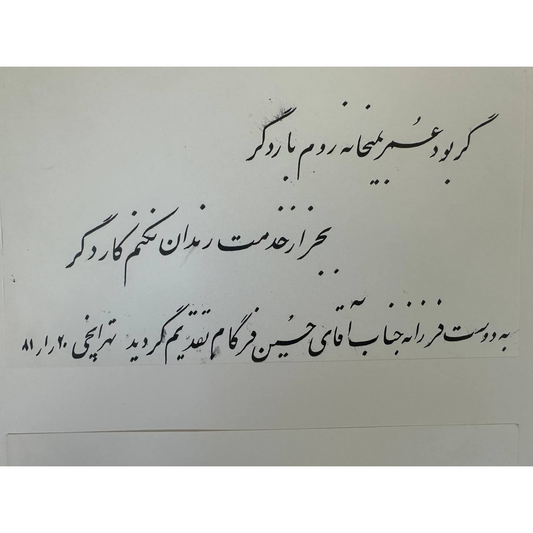 گر بود عُمر بمیخانه روم بار دگر
بجز از خدمت رندان نکنم کار دگر
به دوست فرزانه جناب آقای حسین فرگام تقدیم گردید